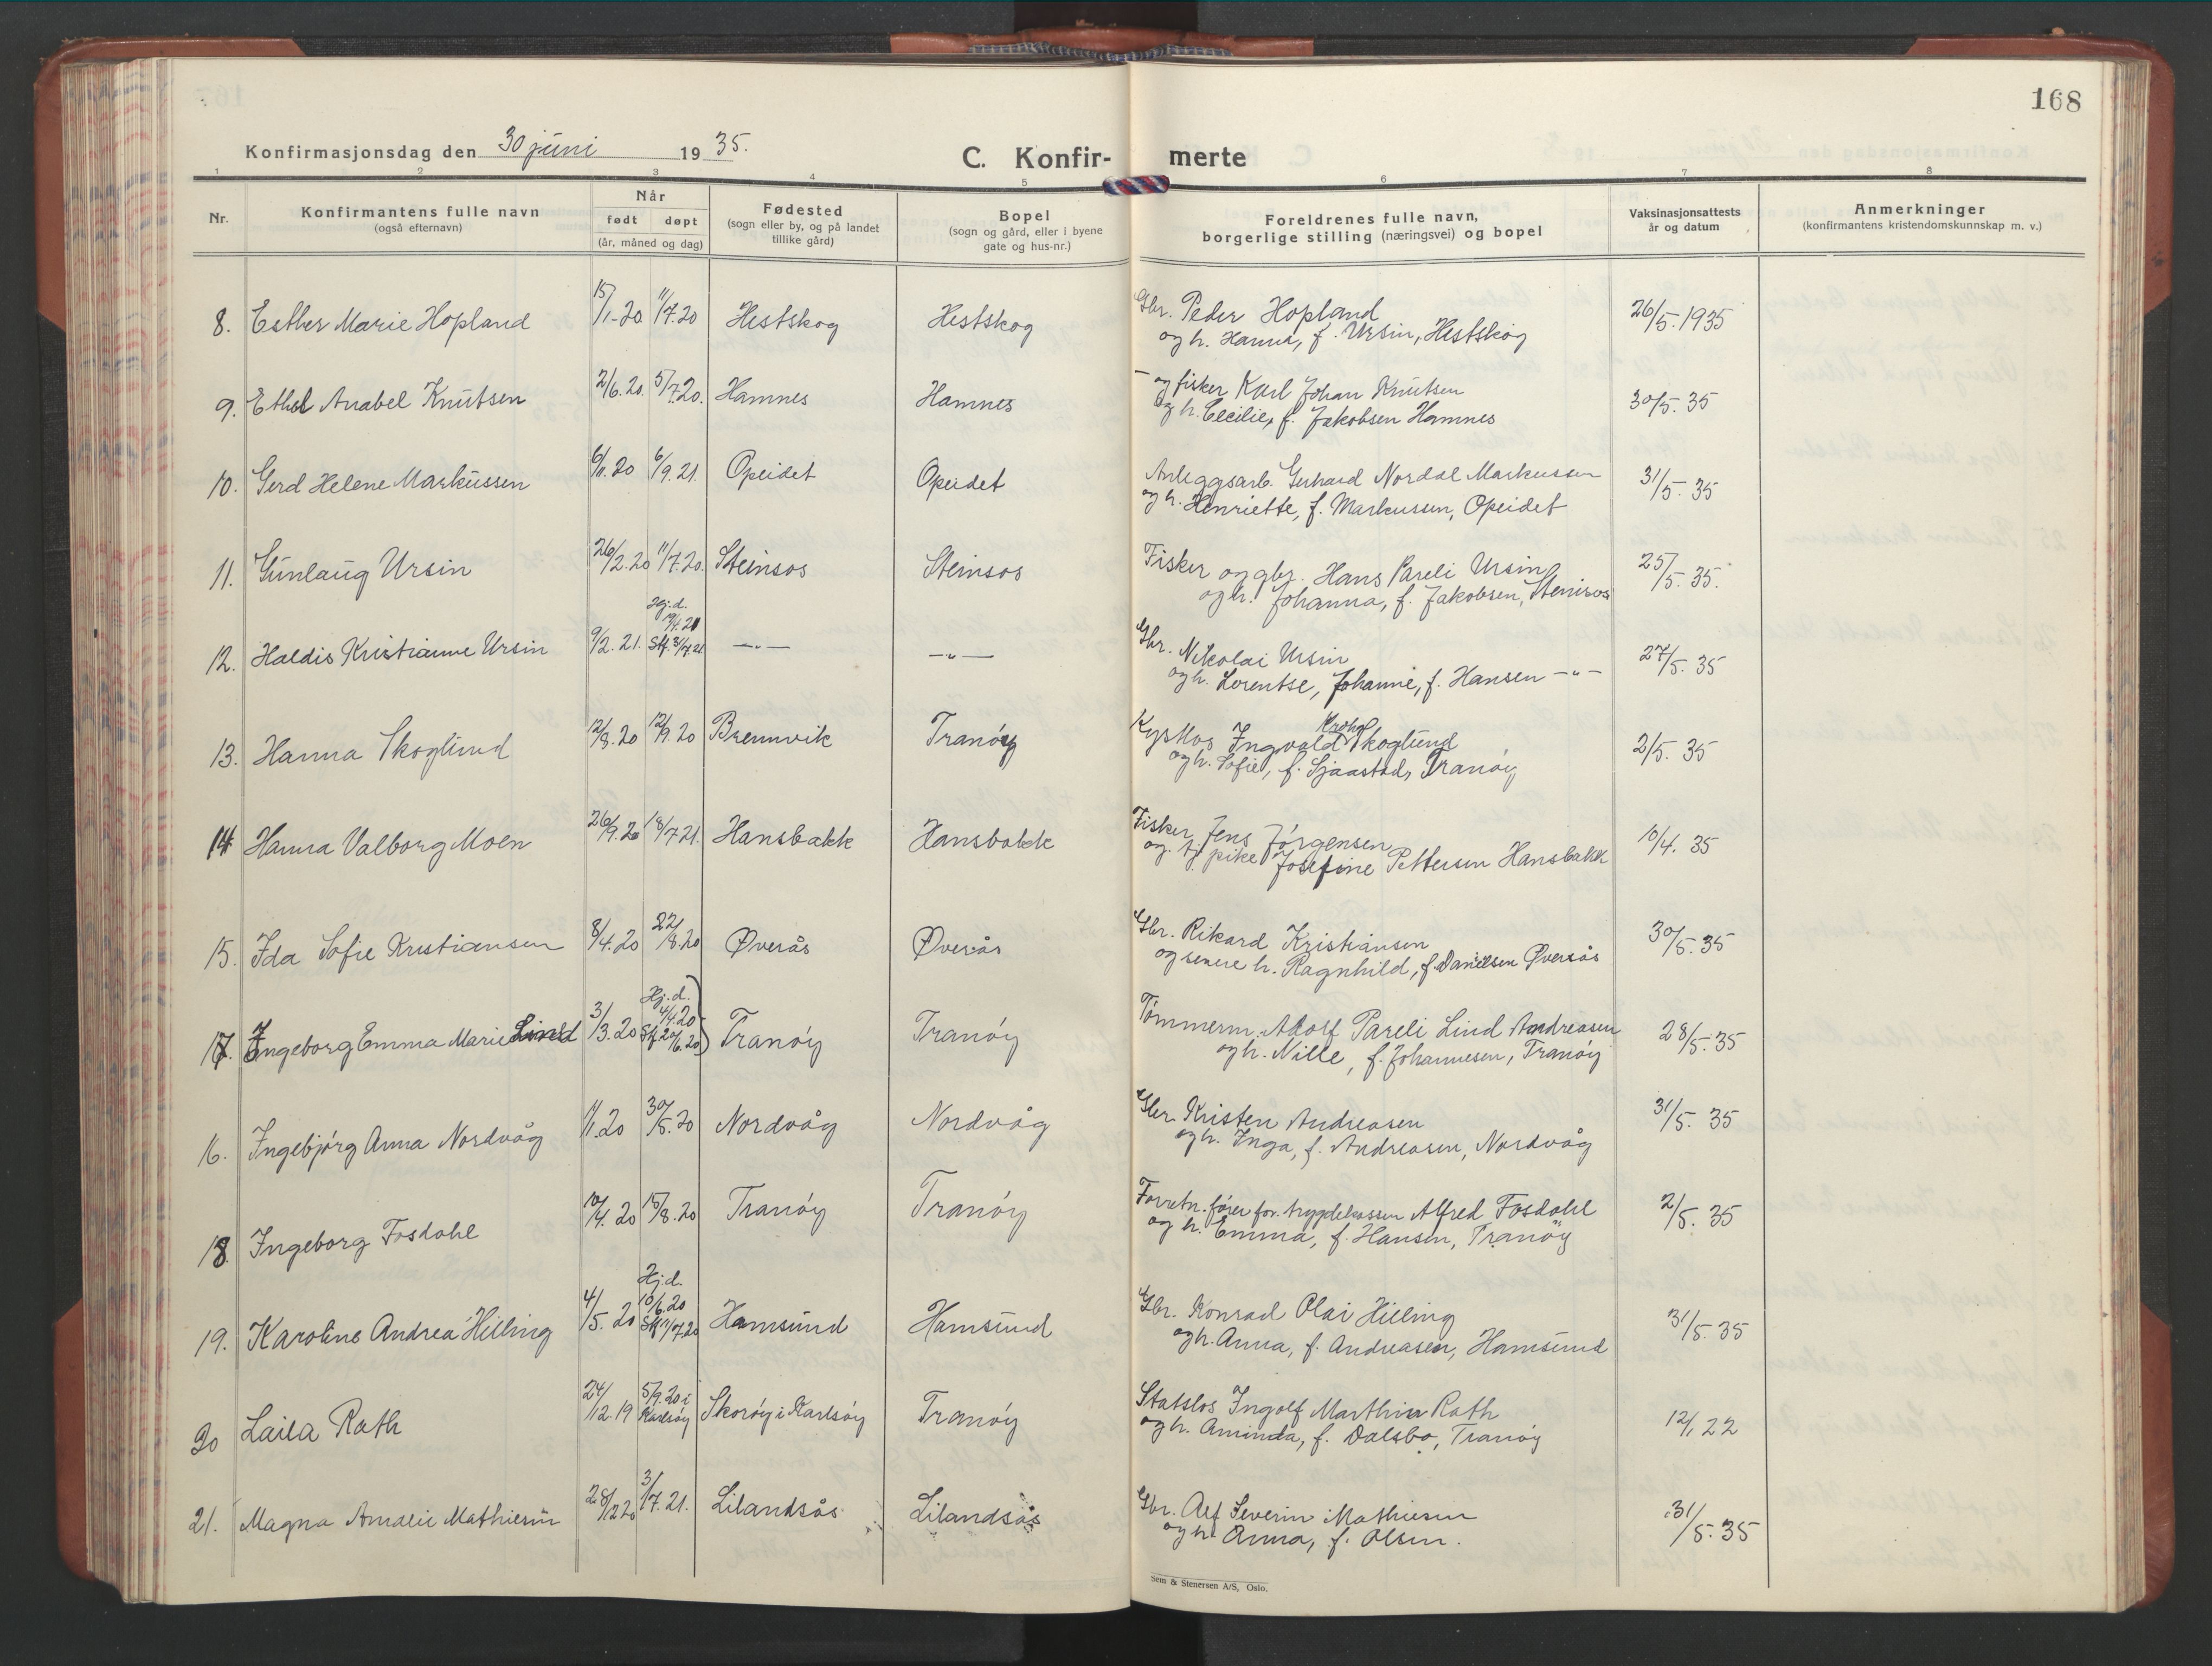 168
Konfirmasjonsdag den 30 juni 1935.
C. Konfir- merte
1 2 3 4 5 6 7 8
Nr.
Konfirmantens fulle navn
(også efternavn)
Når
født døpt
(år, måned og dag)
Fødested
(sogn eller by, og på landet
tillike gård)
Bopel
(sogn og gård, eller i byene
gate og hus-nr.)
Foreldrenes fulle navn,
borgerlige stilling (næringsvei) og bopel
Vaksinasjonsattests
år og datum
Anmerkninger
(konfirmantens kristendomskunnskap m. v.)
8. Esther Marie Hopland 15/1.20. 11/7.20 Hestskog Hestskog
Gbr. Peder Hopland
og h. Hanna, f. Ursin, Hestskog
26/5.1935
9. Ethel Anabel Knutsen 2/6.20. 5/7.20. Hamnes Hamnes
— og fisker Karl Johan Knutsen
og h. Cecilie, f. Jakobsen Hamnes
30/5.35
10. Gerd Helene Markussen 6/11.20 6/9.21. Opeidet Opeidet
Anleggsarb. Gerhard Nordal Markussen
og h. Henriette, f. Markussen, Opeidet
31/5.35
11. Gunlaug Ursin 26/2.20 11/7.20. Steinsos Steinsos
Fisker og gbr. Hans Pareli Ursin
og h. Johanna, f. Jakobsen, Steinsos
25/5.35.
12. Haldis Kristianne Ursin 9/2.21. Hj.d. 19/4.21 Stf. 3/7.21 —"— —"—
Gbr. Nikolai Ursin
og h. Lorentse, Johanne, f. Hansen —"—
27/5.35
13. Hanna Skoglund 12/8.20 12/9.20 Brennvik Tranøy
Kystlos Ingvald Krohg Skoglund
og h. Sofie, f. Sjaastad, Tranøy
2/5.35
14 Hanna Valborg Moen 26/9.20 18/7.21. Hansbakk Hansbakk
Fisker Jens Jørgensen
og tj. pike Josefine Pettersen Hansbakk
10/4.35
15. Ida Sofie Kristiansen 8/4.20 22/8.20 Øverås Øverås
Gbr. Rikard Kristiansen
og senere h. Ragnhild, f. Danielsen Øverås
30/5.35
17. Ingeborg Emma Marie Lind 3/3.20 Hj.d. 4/4.20 Stf 20/6.20) Tranøy Tranøy
Tømmerm. Adolf Pareli Lind Andreasen
og h. Nille, f. Johannesen, Tranøy
28/5.35
16. Ingebjørg Anna Nordvåg 1/1.20 30/5.20 Nordvåg Nordvåg
Gbr. Kristen Andreasen
og h. Inga, f. Andreasen, Nordvåg
31/5.35
18 Ingeborg Fosdahl 10/4.20 15/8.20 Tranøy Tranøy
Forretn. fører for trygdekassen Alfred Fosdahl
og h. Emma, f. Hansen, Tranöy
2/5.35
19. Karoline Andrea Hilling 4/5.20 Hj.d. 10/6.20 Stf 11/7.20 Hamsund Hamsund
Gbr. Konrad Olai Hilling
og h. Anna, f. Andreasen, Hamsund
31/5.35
20 Laila Rath 24/12.19 5/9.20 i Karlsøy Skorøy i Karlsøy Tranøy
Statslos Ingolf Marthin Rath
og h. Aminda, f. Dalsbo, Tranøy
12/1 22
21. Magna Amalie Mathiesen 28/12 20 3/7.21. Lilandsås Lilandsås
Gbr. Alf Severin Mathiesen
og h. Anna, f. Olsen.
31/5.35
Sem & Stenersen A/S, Oslo.